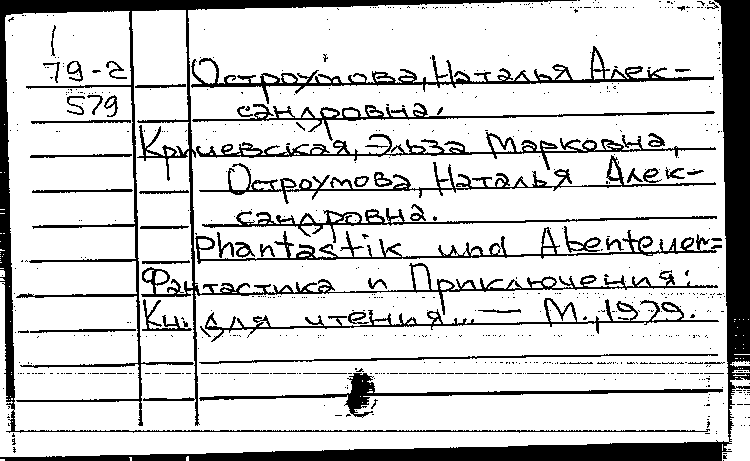 79-2
579
Остроумова, Наталья Алек-
сандровна.
Кричевская, Эльза Марковна,
Остроумова, Наталья Алек-
сандровна.
Phantastik und Abenteuer=
Фантастика и Приключения:
Кн. для чтения... — М., 1979.